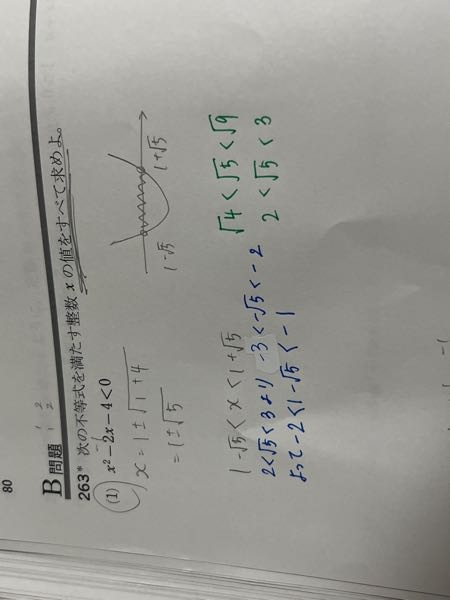 80
B 問題
263* 次の不等式を満たす整数 x の値をすべて求めよ。
(1) x²-2x-4<0
x=1±√1+4
=1±√5
1-√5
1+√5
1-√5<x<1+√5
2<√5<3より -3<-√5<-2
よって-2<1-√5<-1
√4<√5<√9
2<√5<3